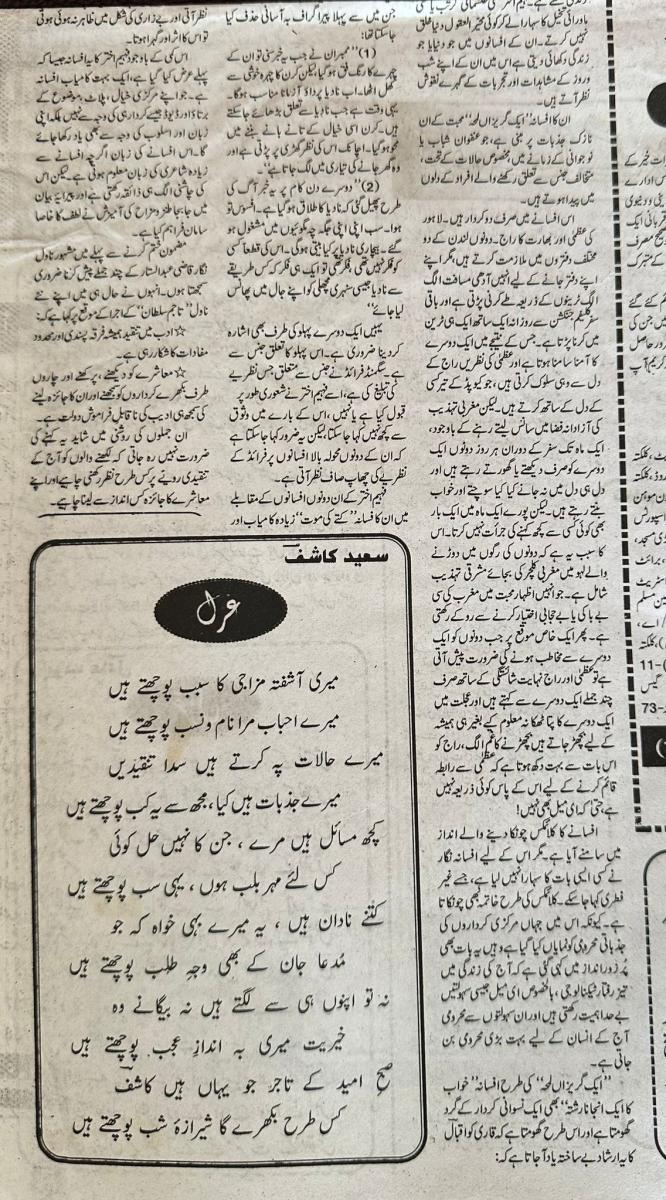 ماورائی تخیل کا سہارا لے کر کوئی محیر العقول دنیا خلق
نہیں کرتے۔ ان کے افسانوں میں جو دنیا یا جو
زندگی دکھائی دیتی ہے اس میں ان کے اپنے شب
وروز کے مشاہدات اور تجربات کے گہرے نقوش
نظر آتے ہیں۔
ان کا افسانہ ’’ایک گریزاں لمحہ‘‘ محبت کے ان
نازک جذبات پر مبنی ہے، جو عنفوان شباب یا
نوجوانی کے زمانے میں مخصوص حالات کے تحت،
مخالف جنس سے تعلق رکھنے والے افراد کے دلوں
میں پیدا ہوتے ہیں۔
اس افسانے میں صرف دو کردار ہیں۔ لاہور
کی عظمیٰ اور بھارت کا راج۔ دونوں لندن کے دو
مختلف دفتروں میں ملازمت کرتے ہیں، مگر اپنے
اپنے دفتر جانے کے لیے انہیں آدھی مسافت الگ
الگ ٹرینوں کے ذریعہ طے کرنی پڑتی ہے اور باقی
سفر جنکشن سے روزانہ ایک ساتھ ایک ہی ٹرین
میں کرنا پڑتا ہے۔ جس کے نتیجے میں ایک دوسرے
کا آمنا سامنا ہوتا ہے اور عظمیٰ کی نظریں راج کے
دل سے وہی سلوک کرتی ہیں، جو کیوپڈ کے تیر کسی
کے دل کے ساتھ کرتے ہیں۔ لیکن مغربی تہذیب
کی آزادانہ فضا میں سانس لیتے رہنے کے باوجود،
ایک ماہ تک سفر کے دوران ہر روز دونوں ایک
دوسرے کو صرف دیکھتے یا گھورتے رہتے ہیں اور
دل ہی دل میں نہ جانے کیا کیا سوچتے اور خواب
بنتے رہتے ہیں۔ لیکن پورے ایک ماہ میں ایک بار
بھی کوئی کسی سے کچھ کہنے کی جرأت نہیں کرتا۔ اس
کا سبب یہ ہے کہ دونوں کی رگوں میں دوڑنے
والے لہو میں مغربی کلچر کی بجائے مشرقی تہذیب
شامل ہے۔ جو انہیں اظہار محبت میں مغرب کی سی
بے باکی یا بے حجابی اختیار کرنے سے روکے رکھتی
ہے۔ پھر ایک خاص موقع پر جب دونوں کو ایک
دوسرے سے مخاطب ہونے کی ضرورت پیش آتی
ہے تو عظمیٰ اور راج نہایت شائستگی کے ساتھ صرف
چند جملے ایک دوسرے سے کہتے ہیں اور عجلت میں
ایک دوسرے کا پتا ٹھکانہ معلوم کیے بغیر ہی ہمیشہ
کے لیے بچھڑ جاتے ہیں، بچھڑنے کا غم الگ، راج کو
اس بات سے بہت دکھ ہوتا ہے کہ عظمیٰ سے رابطہ
قائم کرنے کے لیے اس کے پاس کوئی ذریعہ نہیں
ہے، حتیٰ کہ ای میل بھی نہیں!
افسانے کا کلائمکس چونکا دینے والے انداز
میں سامنے آیا ہے۔ مگر اس کے لیے افسانہ نگار
نے کسی ایسی بات کا سہارا نہیں لیا ہے، جسے غیر
فطری کہا جا سکے۔ کلائمکس کی طرح خاتمہ بھی چونکاتا
ہے۔ کیونکہ اس میں جہاں مرکزی کرداروں کی
جذباتی محرومی کو نمایاں کیا گیا ہے وہیں یہ بات بھی
پر زور انداز میں کہی گئی ہے کہ آج کی زندگی میں
تیز رفتار ٹیکنالوجی، بالخصوص ای میل جیسی سہولتیں
بے حد اہمیت رکھتی ہیں اور ان سہولتوں سے محرومی
آج کے انسان کے لیے بہت بڑی محرومی بن
جاتی ہے۔
’’ایک گریزاں لمحہ‘‘ کی طرح افسانہ ’’خواب
کا ایک انجانا رشتہ‘‘ بھی ایک نسوانی کردار کے گرد
گھومتا ہے اور اس طرح گھومتا ہے کہ قاری کو اقبال
کا یہ ارشاد بے ساختہ یاد آ جاتا ہے کہ:
جن میں سے پہلا پیراگراف بہ آسانی حذف کیا
جا سکتا تھا:
(1) ’’ممبران نے جب یہ خبر سنی تو ان کے
چہرے کا رنگ فق ہو گیا، لیکن کرن کا چہرہ خوشی سے
کھل اٹھا۔ اب نادیا پر داؤ آزمانا مناسب ہوگا۔
یہی وقت ہے جب نادیا سے تعلق بڑھائے جا سکتے
ہیں۔ کرن اسی خیال کے تانے بانے بننے میں
محو ہو گیا۔ اچانک اس کی نظر گھڑی پر پڑتی ہے اور
وہ گھر جانے کی تیاری میں لگ جاتا ہے‘‘۔
(2) ’’دوسرے دن کام پر یہ خبر آگ کی
طرح پھیل گئی کہ نادیا کا طلاق ہو گیا ہے۔ افسوس تو
ہوا۔ سب اپنی اپنی جگہ چہ مگوئیوں میں مشغول ہو
گئے۔ بیچاری نادیا پر کیا بیتی ہوگی۔ اس کی قطعاً کسی
کو فکر نہیں تھی، فکر تھی تو ایک ہی فکر کہ کس طریقے
سے نادیا جیسی سنہری مچھلی کو اپنے جال میں پھانس
لیا جائے‘‘
یہیں ایک دوسرے پہلو کی طرف بھی اشارہ
کر دینا ضروری ہے۔ اس پہلو کا تعلق جنس سے
ہے۔ سگمنڈ فرائڈ نے جنس سے متعلق جس نظریے
کی تبلیغ کی ہے، اسے فہیم اختر نے شعوری طور پر
قبول کیا ہے یا نہیں، اس کے بارے میں وثوق
سے کچھ نہیں کہا جا سکتا، لیکن یہ ضرور کہا جا سکتا ہے
کہ ان کے دونوں محولہ بالا افسانوں پر فرائڈ کے
نظریے کی چھاپ صاف نظر آتی ہے۔
فہیم اختر کے ان دونوں افسانوں کے مقابلے
میں ان کا افسانہ ’’کتے کی موت‘‘ زیادہ کامیاب اور
نظر آتی اور بے زاری کی شکل میں ظاہر نہ ہوئی ہوتی
تو اس کا اثر اور گہرا ہوتا۔
اس کمی کے باوجود فہیم اختر کا یہ افسانہ جیسا کہ
پہلے عرض کیا گیا ہے، ایک بہت کامیاب افسانہ
ہے۔ جو اپنے مرکزی خیال، پلاٹ، موضوع کے
برتاؤ اور ڈیوڈ جیسے کردار ہی کی وجہ سے نہیں بلکہ اپنی
زبان اور اسلوب کی وجہ سے بھی یاد رکھا جائے
گا۔ اس افسانے کی زبان اگرچہ افسانے سے
زیادہ شاعری کی زبان معلوم ہوتی ہے۔ لیکن اس
کی چاشنی الگ ہی ذائقہ رکھتی ہے اور پیرایۂ بیان
میں جا بجا طنز و مزاح کی آمیزش نے لطف کا خاصا
سامان فراہم کیا ہے۔
مضمون ختم کرنے سے پہلے میں مشہور ناول
نگار قاضی عبدالستار کے چند جملے پیش کرنا ضروری
سمجھتا ہوں۔ انہوں نے حال ہی میں اپنے نئے
ناول ’’تاجم سلطان‘‘ کے اجرا کے موقع پر کہا ہے کہ:
☆ ادب میں تنقید ہمیشہ فرقہ پسندی اور محدود
مفادات کا شکار رہی ہے۔
☆ معاشرے کو دیکھنے، پرکھنے اور چاروں
طرف بکھرے کرداروں کو سمجھنے اور ان کا جائزہ لینے
کی سمجھ ہی ادیب کی ناقابل فراموش دولت ہے۔
ان جملوں کی روشنی میں شاید یہ کہنے کی
ضرورت نہیں رہ جاتی کہ لکھنے والوں کو آج کے
تنقیدی رویے پر کس طرح نظر رکھنی چاہیے اور اپنے
معاشرے کا جائزہ کس انداز سے لینا چاہیے۔
سعید کاشف
غزل
میری آشفتہ مزاجی کا سبب پوچھتے ہیں
میرے احباب مرا نام و نسب پوچھتے ہیں
میرے حالات پہ کرتے ہیں سدا تنقیدیں
میرے جذبات ہیں کیا، مجھ سے یہ کب پوچھتے ہیں
کچھ مسائل ہیں مرے ، جن کا نہیں حل کوئی
کس لئے مہر بلب ہوں ، یہی سب پوچھتے ہیں
کتنے نادان ہیں ، یہ میرے بہی خواہ کہ جو
مُدعا جان کے بھی وجہِ طلب پوچھتے ہیں
نہ تو اپنوں ہی سے لگتے ہیں نہ بیگانے وہ
خیریت میری بہ اندازِ عجب پوچھتے ہیں
صبحِ امید کے تاجر جو یہاں ہیں کاشف
کس طرح بکھرے گا شیرازۂ شب پوچھتے ہیں
11-
73-